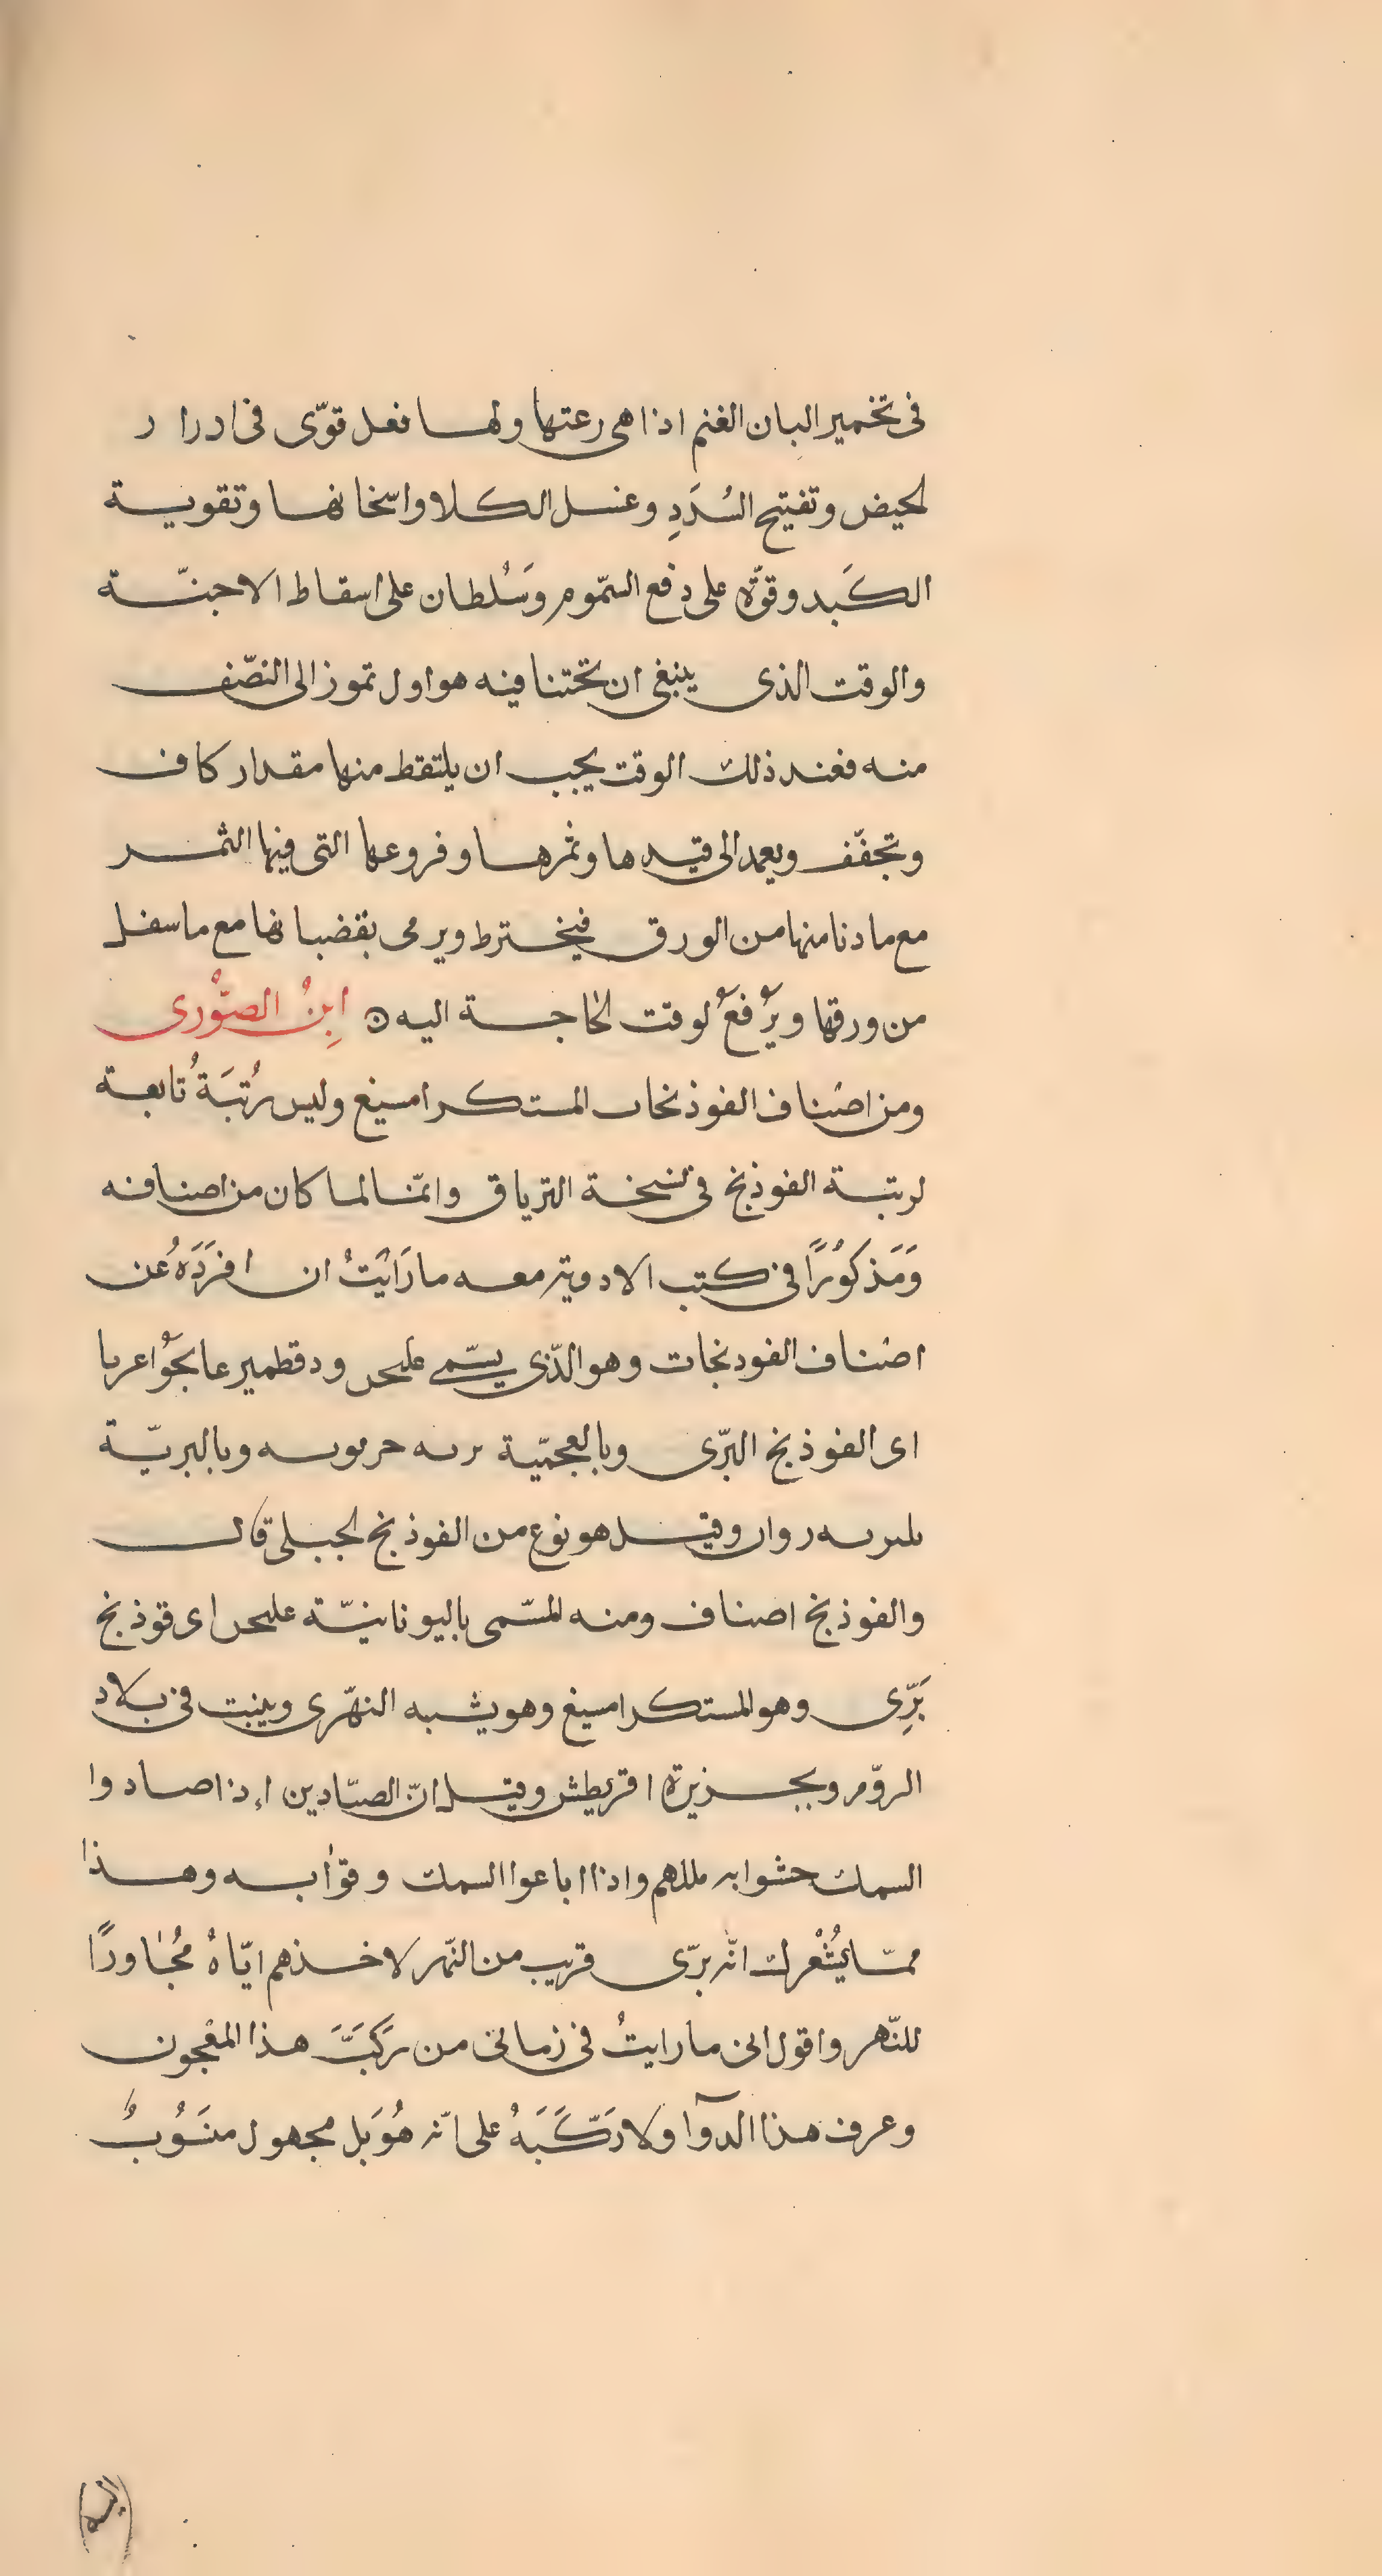 فى تخمير البان الغنم اذا هى رعتها ولها فعل قوّى فى ادرار
لحيض وتفتيح السُدَدِ وغسل الكلا واسخانها وتقوية
الكَبد وقوّة على دفع السّموم وَسُلطان على اسقاط الاجنّة
والوقت الذى ينبغى ان تختنا فيه هو اول تموز الى النصّف
منه فعند ذلك الوقت يجب ان يلتقط منها مقدار كاف
وتجفّف ويعمد الى قيدها وثمرها وفروعها التى فيها الثمر
مع ما دنا منها من الورق فيخترط ويرمى بقضبانها مع ما سفل
من ورقها ويُرفعُ لوقت الحاجة اليه ابنُ الصّورى
ومن اصناف الفوذنجات المستكرامسيغ وليس رُتبَةُ تابعة
لرتبة الفوذنج فى نسخة الترياق وانّما لما كان من اصنافه
وَمَذكوُرًا فى كتب الادوية معه ما رَايَتُ ان افرَدَهُ عن
اصناف الفودنجات وهو الذّى يسّمى عليحن ودقطمير عا بجوُ اعربا
اى الفوذنج البرّى وبالعجميّة حربوبه وبالبربّة
وقيل هو نوع من الفوذنج لجبلى قال
والفوذنج اصناف ومنه المسّمى باليونانيّة عليحن اى قوذنج
بَرِّى وهو المستكرامسيغ وهو يشبه النهّرى وينبت فى بلاد
الروّم وبجزيرة اقريطش وقيل انّ الصيّادين إذا صادوا
السمك حشوا به سللهم واذا اباعوا السمك وقوّا به وهذا
ممّا يُشْعُرك انّه برّى قريب من النّهر لاخذهم ايّاهُ مُجَاورًا
للنّهر واقول انى ما رايتُ فى زمانى من ركَبَّ هذا المعْجون
وعرف هذا الدوآ ولا ركّبَهُ على انّه هُوَ بل مجهول منسَوُبُ